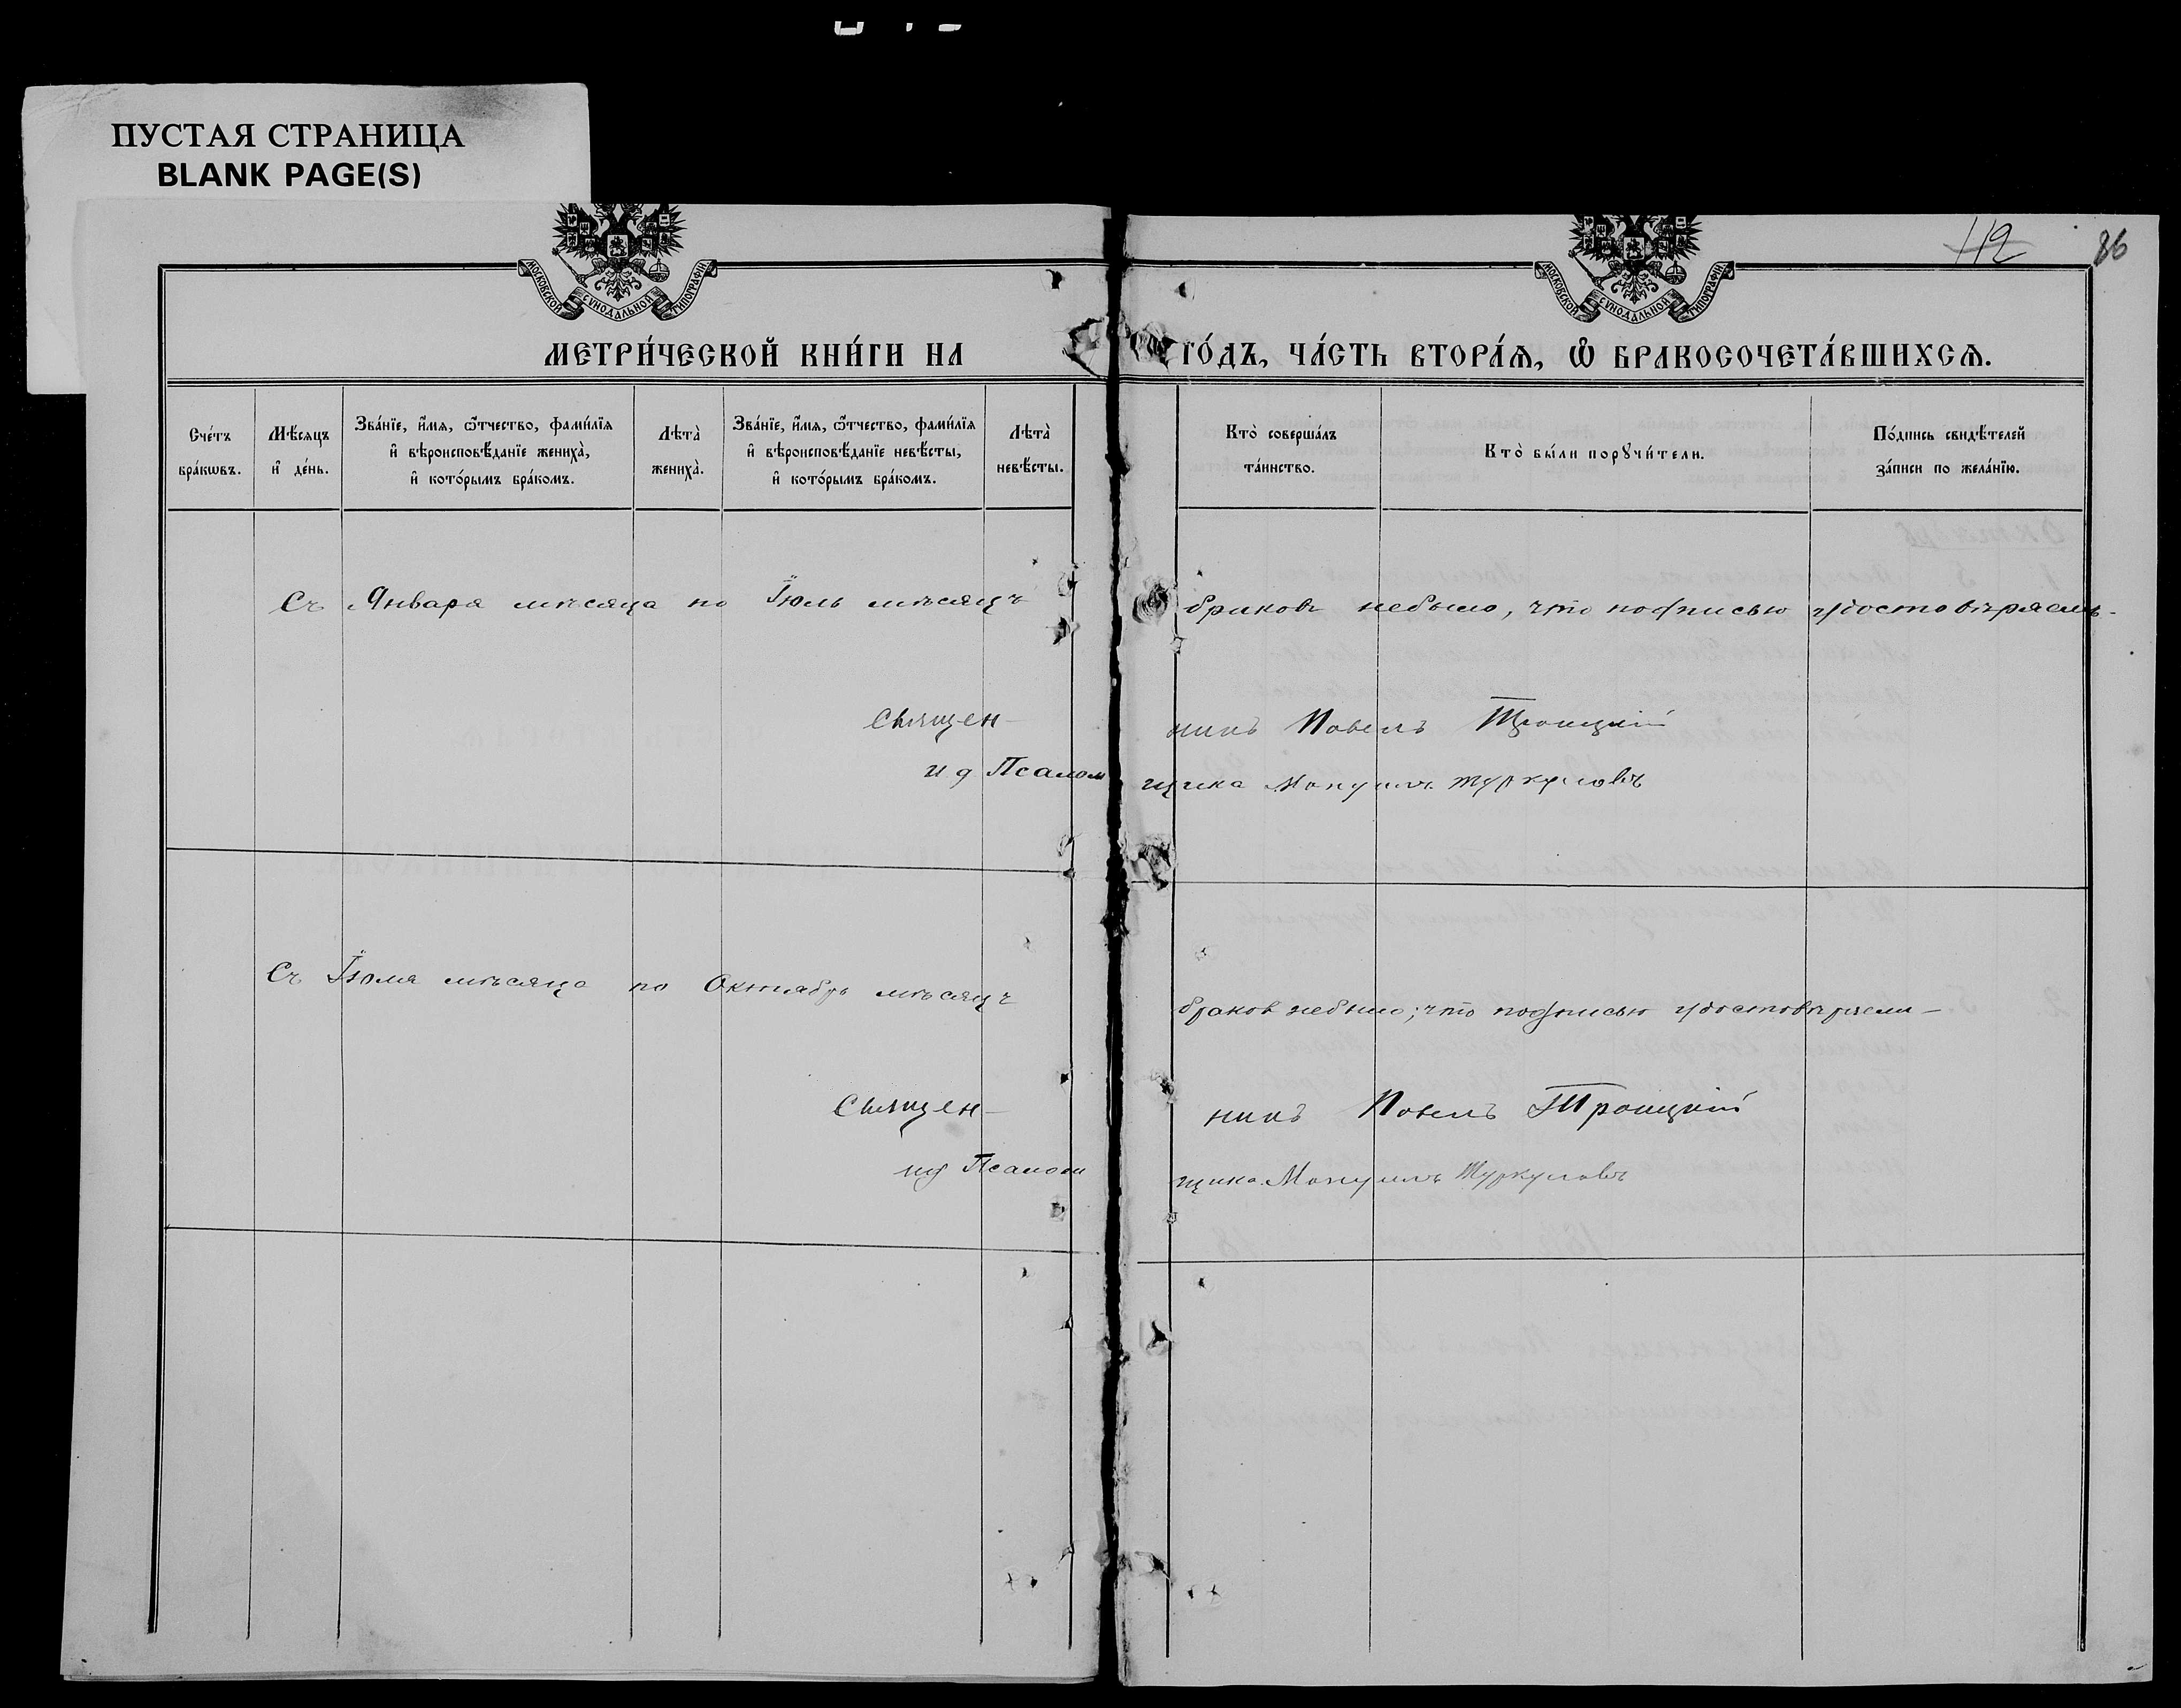 ПУСТАЯ СТРАНИЦА
BLANK PAGE(S)
112 86
МОСКОВСКОЙ СѴНОДАЛЬНОЙ ТИПОГРАФІИ
МОСКОВСКОЙ СѴНОДАЛЬНОЙ ТИПОГРАФІИ
МЕТРИ́ЧЕСКОЙ КНИ́ГИ НА ГО́ДЪ, ЧА́СТЬ ВТОРА́Ѧ, Ѽ БРАКОСОЧЕТА́ВШИХСѦ.
Сче́тъ бра́кѡвъ.
Мѣ́сѧцъ и҆ де́нь.
Зва́нїе, и҆́мѧ, ѻ҆́тчество, фами́лїѧ и҆ вѣроисповѣ́данїе жениха̀, и҆ кото́рымъ бра́комъ.
Лѣта̀ жениха̀.
Зва́нїе, и҆́мѧ, ѻ҆́тчество, фами́лїѧ и҆ вѣроисповѣ́данїе невѣ́сты, и҆ кото́рымъ бра́комъ.
Лѣта̀ невѣ́сты.
Кто̀ соверша́лъ та́инство.
Кто̀ бы́ли порꙋчи́тели.
По́дпись свидѣ́телей за́писи по жела́нїю.
Съ Января мѣсяца по Іюль мѣсяцъ браковъ небыло, что подписью удостовѣряемъ.
Священ- никъ Павелъ Троицкій
и д Псаломщика Мануилъ Туркуловъ
Съ Іюля мѣсяца по Октябрь мѣсяцъ браков небыло; что подписью удостовѣряемъ
Священ- никъ Павелъ Троицкій
ид Псаломщика Мануилъ Туркуловъ